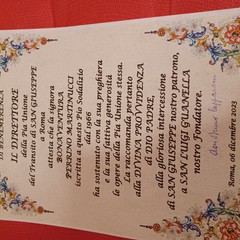 in BENEMERENZA
IL DIRETTORE
della Pia Unione
del Transito di SAN GIUSEPPE
a Roma
attesta che la signora
BONAVENTURA
PERRINO MARTINUCCI
iscritta a questo Pio Sodalizio
nel 1966
ha sostenuto con la sua preghiera
e la sua fattiva generosità
le opere della Pia Unione stessa.
La raccomanda pertanto
alla DIVINA PROVVIDENZA
di DIO PADRE,
alla gloriosa intercessione
di SAN GIUSEPPE nostro patrono,
a SAN LUIGI GUANELLA
nostro Fondatore.
Roma, 06 dicembre 2023